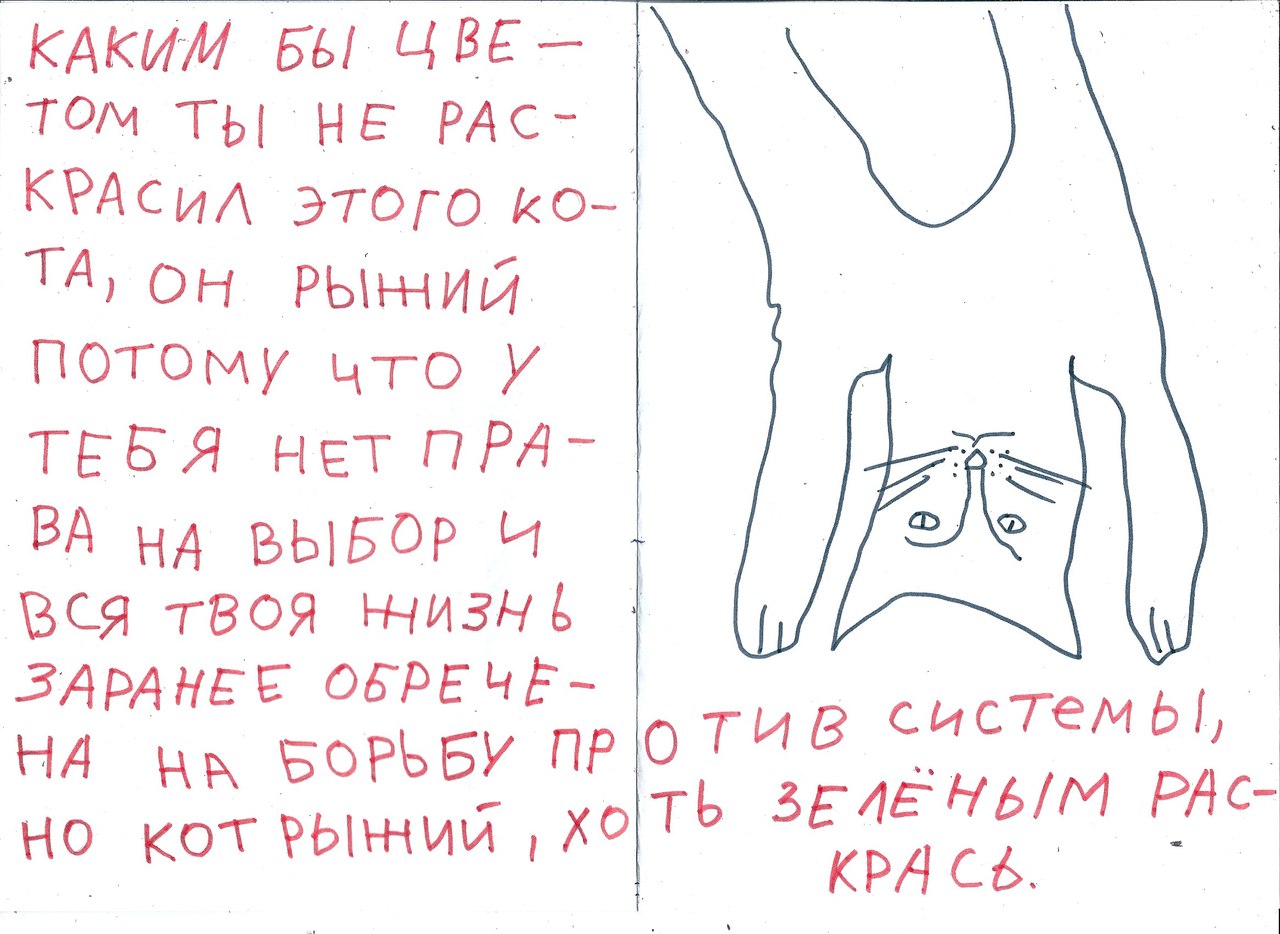 КАКИМ БЫ ЦВЕ–
ТОМ ТЫ НЕ РАС-
КРАСИЛ ЭТОГО КО-
ТА, ОН РЫЖИЙ
ПОТОМУ ЧТО У
ТЕБЯ НЕТ ПРА-
ВА НА ВЫБОР И
ВСЯ ТВОЯ ЖИЗНЬ
ЗАРАНЕЕ ОБРЕЧЕ-
НА НА БОРЬБУ ПРОТИВ СИСТЕМЫ,
НО КОТ РЫЖИЙ, ХОТЬ ЗЕЛЁНЫМ РАС-
КРАСЬ.